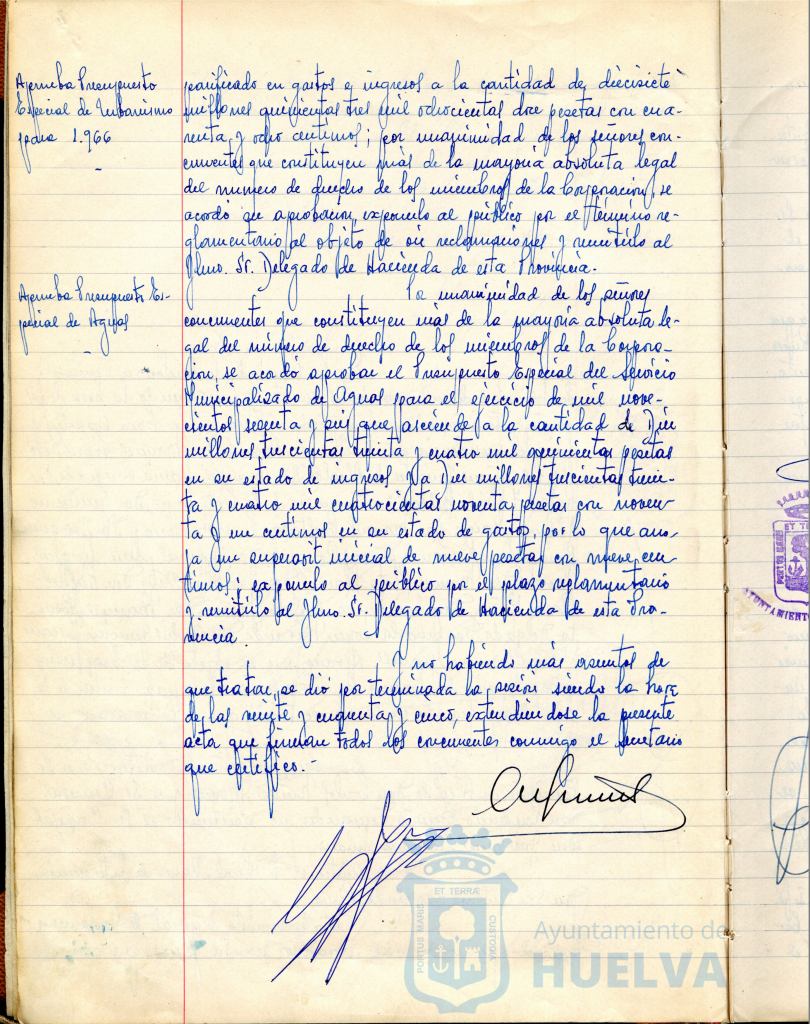 Aprueba Presupuesto
Especial de Urbanismo
para 1.966
-
parificado en gastos e ingresos a la cantidad de diecisiete
millones quinientas tres mil ochocientas doce pesetas con cua-
renta y ocho centimos; por unanimidad de los señores con-
currentes que constituyen más de la mayoria absoluta legal
del numero de derecho de los miembros de la Corporacion, se
acordó su aprobacion, exponerlo al público por el término re-
glamentario al objeto de oir reclamaciones y remitirlo al
Ilmo. Sr. Delegado de Hacienda de esta Provincia.
Aprueba Presupuesto Es-
pecial de Aguas
-
Por unanimidad de los señores
concurrentes que constituyen más de la mayoria absoluta le-
gal del número de derecho de los miembros de la Corpora-
cion, se acordó aprobar el Presupuesto Especial del Servicio
Municipalizado de Aguas para el ejercicio de mil nove-
cientos sesenta y seis que asciende a la cantidad de Diez
millones trescientas treinta y cuatro mil quinientas pesetas
en su estado de ingresos y a Diez millones trescientas trein-
ta y cuatro mil cuatrocientas noventa pesetas con noven-
ta y un centimos en su estado de gastos, por lo que arro-
ja un superavit inicial de nueve pesetas con nueve cen-
timos; exponerlo al público por el plazo reglamentario
y remitirlo al Ilmo. Sr. Delegado de Hacienda de esta Pro-
vincia.
Y no habiendo más asuntos de
que tratar, se dió por terminada la sesión siendo la hora
de las veinte y cincuenta y cinco, extendiendose la presente
acta que firman todos los concurrentes conmigo el Secretario
que certifico.-
ET TERRÆ
PORTUS MARIS
CUSTODIA
Ayuntamiento de
HUELVA
ET TERR
PORTUS MARIS
AYUNTAMIENTO